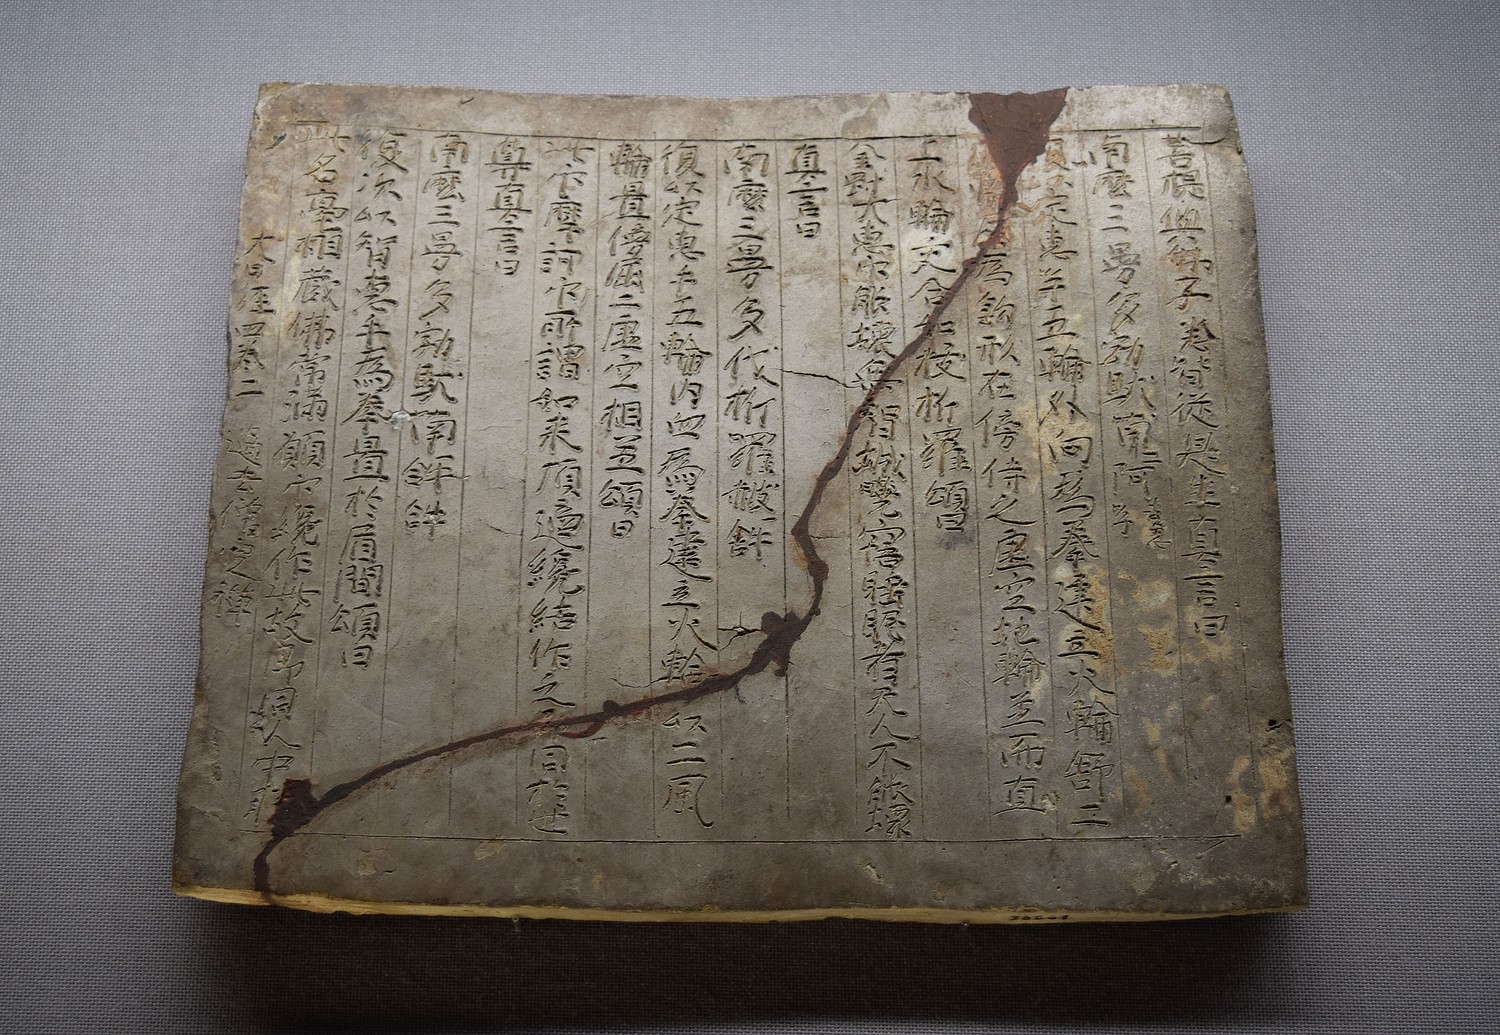 菩提與弟子悉皆從是生真言曰
南麼三曼多勃馱喃阿急呼
定惠手五輪外向為拳建立火輪舒二
為鉤形在傍持之虛空地輪並而直
上水輪交合如拔折羅頌曰
金剛大惠印能壞無智城曉寤睡眠者天人不能壞
真言曰
南麼三曼多伐折羅赧吽
復以定惠手五輪內向為拳建立火輪以二風
輪置傍屈二虛空相並頌曰
此印摩訶印所謂如来頂適纔結作之同於世
尊真言曰
南麼三曼多勃馱喃吽吽
復次以智惠手為拳置於眉間頌曰
此名毫相藏佛常滿願印纔作此故即同人中勝
大日經四卷二 過去僧